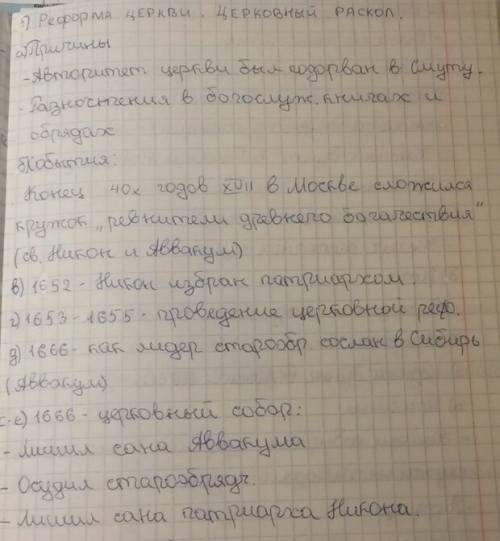 1) Реформа церкви. Церковный раскол.
а) Причины
- Авторитет церкви был подорван в Смуту.
- Разночтения в богослуж. книгах и
обрядах
б) События:
Конец 40х годов XVII в Москве сложился
кружок „ревнители древнего богачествия"
(св. Никон и Аввакум)
в) 1652 - Никон избран патриархом.
г) 1653-1655 - проведение церковной рефо.
д) 1666 - как лидер старообр. сослан в Сибирь
(Аввакум)
е) 1666 - церковный собор:
- Лишил сана Аввакума
- Осудил старообрядч.
- Лишил сана патриарха Никона.